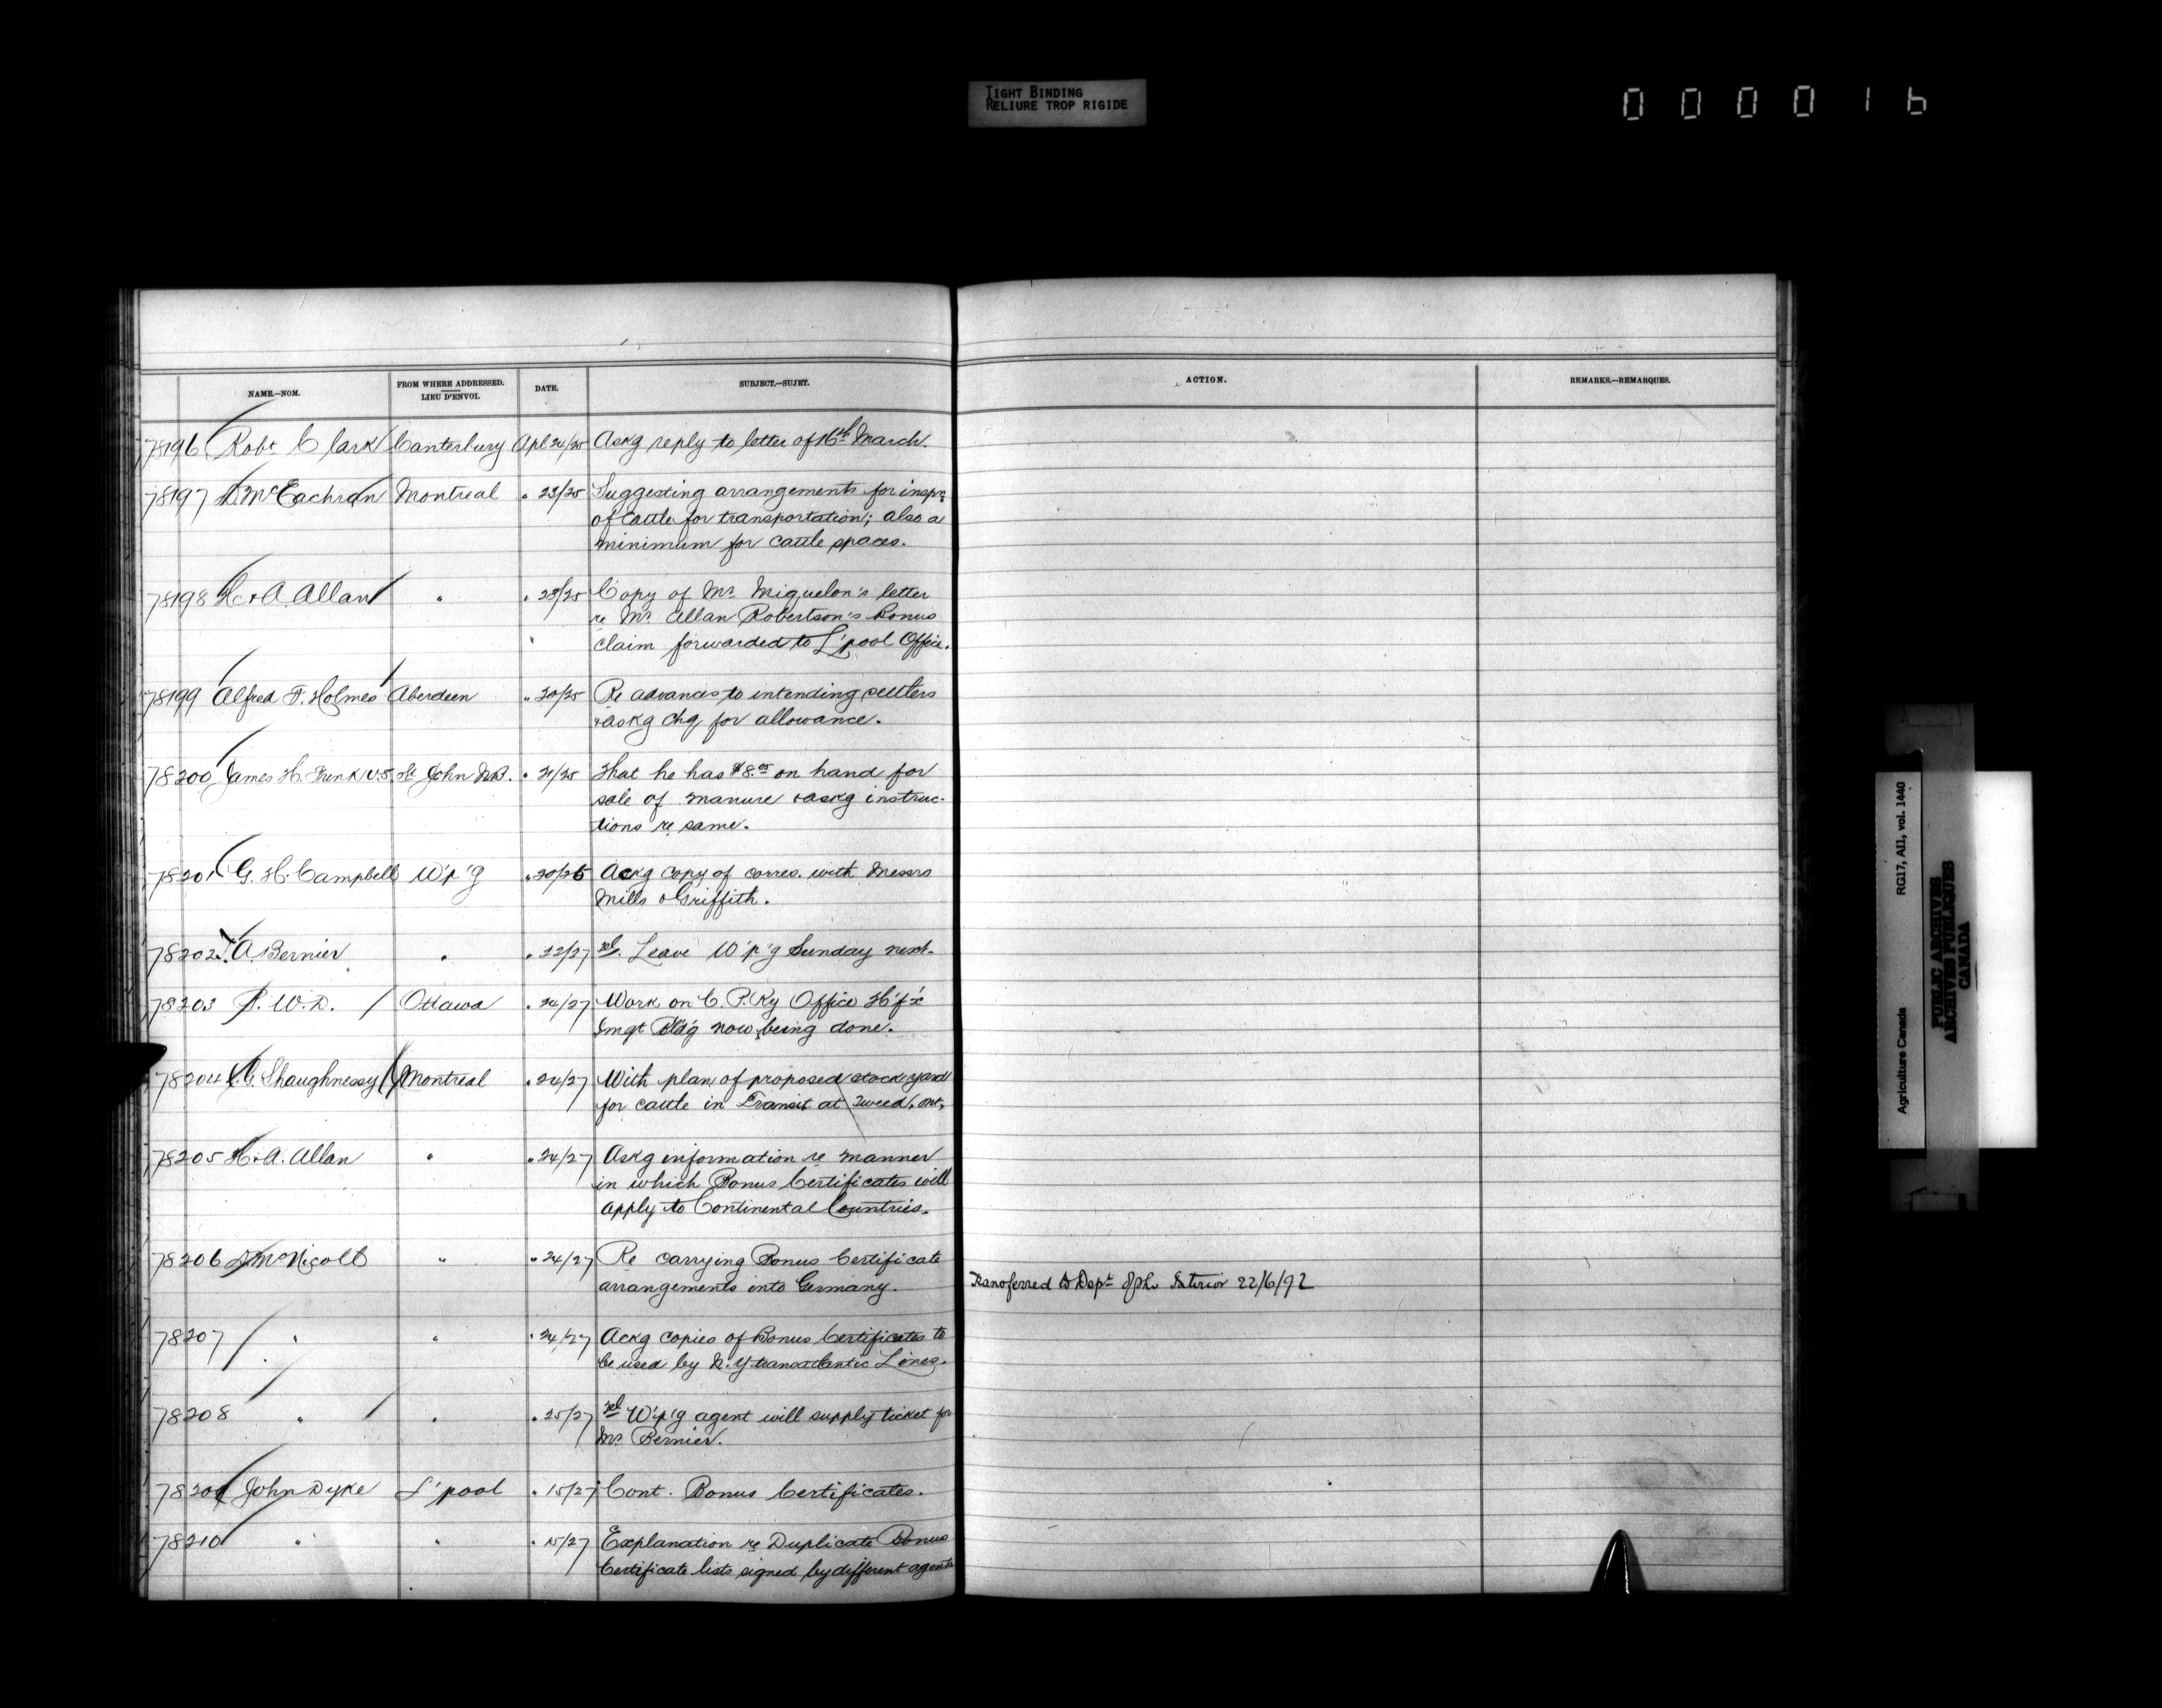 TIGHT BINDING
RELIURE TROP RIGIDE
000016
NAME.—NOM.
FROM WHERE ADDRESSED.
LIEU D'ENVOI.
DATE.
SUBJECT.—SUJET.
ACTION.
REMARKS.—REMARQUES.
78196 Robt Clark Canterbury Apl 24/25 Askg reply to letter of 16th March.
78197 D. McEachran Montreal " 23/25 Suggesting arrangements for inspn
of cattle for transportation; also a
minimum for cattle spaces.
78198 H. & A. Allan " " 23/25 Copy of Mr Miquelon's letter
re Mr Allan Robertson's Bonus
" claim forwarded to L'pool Office.
78199 Alfred F. Holmes Aberdeen " 20/25 Re advances to intending settlers
& askg chq for allowance.
78200 James H. Frink V.S. St John N.B. " 21/25 That he has $8.00 on hand for
sale of manure & askg instruc-
tions re same.
78201 G. H. Campbell W'p'g " 20/25 Ackg copy of corres. with Messrs
Mills & Griffith.
78202 T. A. Bernier " " 22/27 Tel. Leave W'p'g Sunday next.
78203 P. W. D. Ottawa " 24/27 Work on C. P. Ry Office H'f'x
Imgt Bld'g now being done.
78204 T. G. Shaughnessy Montreal " 24/27 With plan of proposed stock yard
for cattle in Transit at Tweed, Ont.
78205 H. & A. Allan " " 24/27 Askg information re manner
in which Bonus Certificates will
apply to Continental Countries.
78206 D. McNicoll " " 24/27 Re carrying Bonus Certificate
arrangements into Germany.
Transferred to Dept of the Interior 22/6/92
78207 " " " 24/27 Ackg copies of Bonus Certificates to
be used by N.Y transatlantic Lines.
78208 " " " 25/27 Tel W'p'g agent will supply ticket for
Mr Bernier.
78209 John Dyke L'pool " 15/27 Cont. Bonus Certificates.
78210 " " " 15/27 Explanation re Duplicate Bonus
Certificate lists signed by different agents
RG17, AII, vol. 1440
Agriculture Canada
PUBLIC ARCHIVES
ARCHIVES PUBLIQUES
CANADA